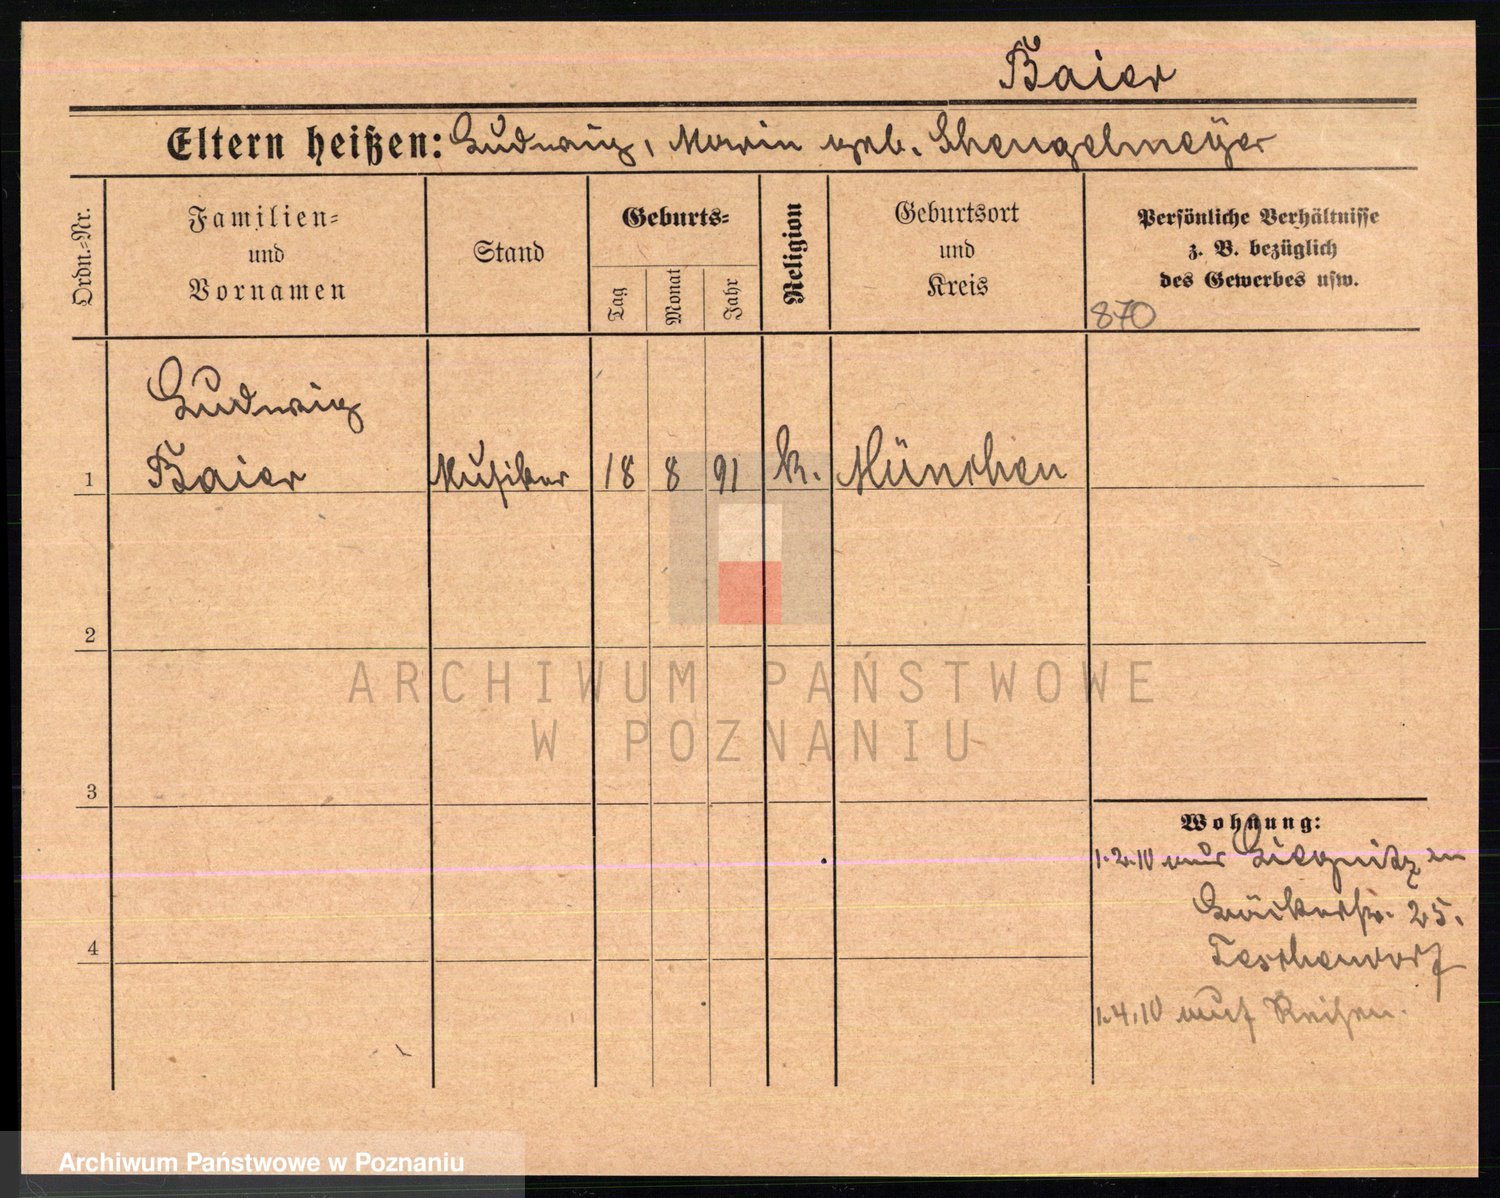 Baier
Eltern heißen: Ludwig, Maria geb. Schengelmeÿer
Ordn.=Nr.
Familien=
und
Vornamen
Stand
Geburts=
Tag
Monat
Jahr
Religion
Geburtsort
und
Kreis
Persönliche Verhältnisse
z. B. bezüglich
des Gewerbes usw.
870
Ludwig
1 Baier Musiker 18 8 91 k. München
2
ARCHIWUM PAŃSTWOWE
W POZNANIU
3
Wohnung:
1.2.10 aus Liegnitz
25.
4 Teschendorf
1.4.10 auf Reisen.
Archiwum Państwowe w Poznaniu